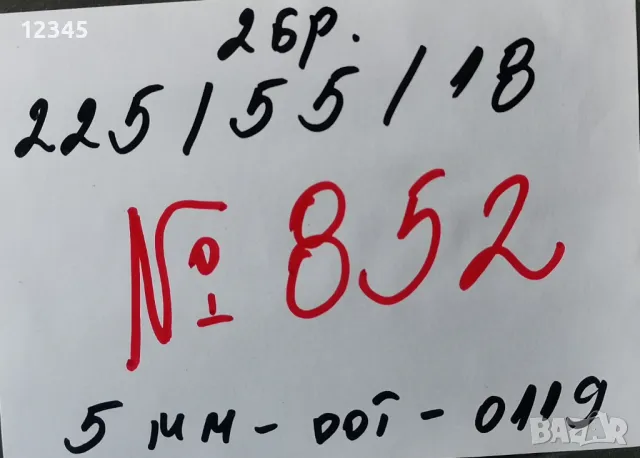 12345
2 бр.
225/55/18
№ 852
5 мм - DOT - 0119
BAZAR